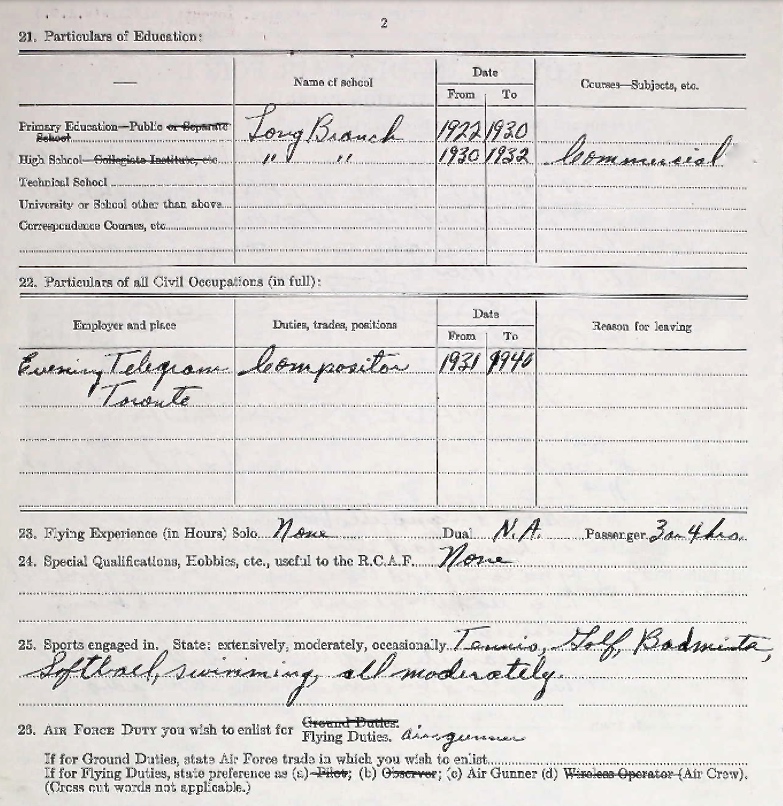 2
21. Particulars of Education:
Name of school Date Courses—Subjects, etc.
From To
Primary Education—Public or Separate School Long Branch 1922 1930
High School—Collegiate Institute, etc. " " 1930 1932 Commercial
Technical School
University or School other than above
Correspondence Courses, etc.
22. Particulars of all Civil Occupations (in full):
Employer and place Duties, trades, positions Date Reason for leaving
From To
Evening Telegram Compositor 1931 1940
Toronto
23. Flying Experience (in Hours) Solo None Dual N.A. Passenger 3 or 4 hrs.
24. Special Qualifications, Hobbies, etc., useful to the R.C.A.F. None
25. Sports engaged in. State: extensively, moderately, occasionally Tennis, Golf, Badminton,
Softball, swimming, all moderately.
26. AIR FORCE DUTY you wish to enlist for Ground Duties.
Flying Duties. Air gunner
If for Ground Duties, state Air Force trade in which you wish to enlist
If for Flying Duties, state preference as (a) Pilot; (b) Observer; (c) Air Gunner (d) Wireless Operator (Air Crew).
(Cross out words not applicable.)